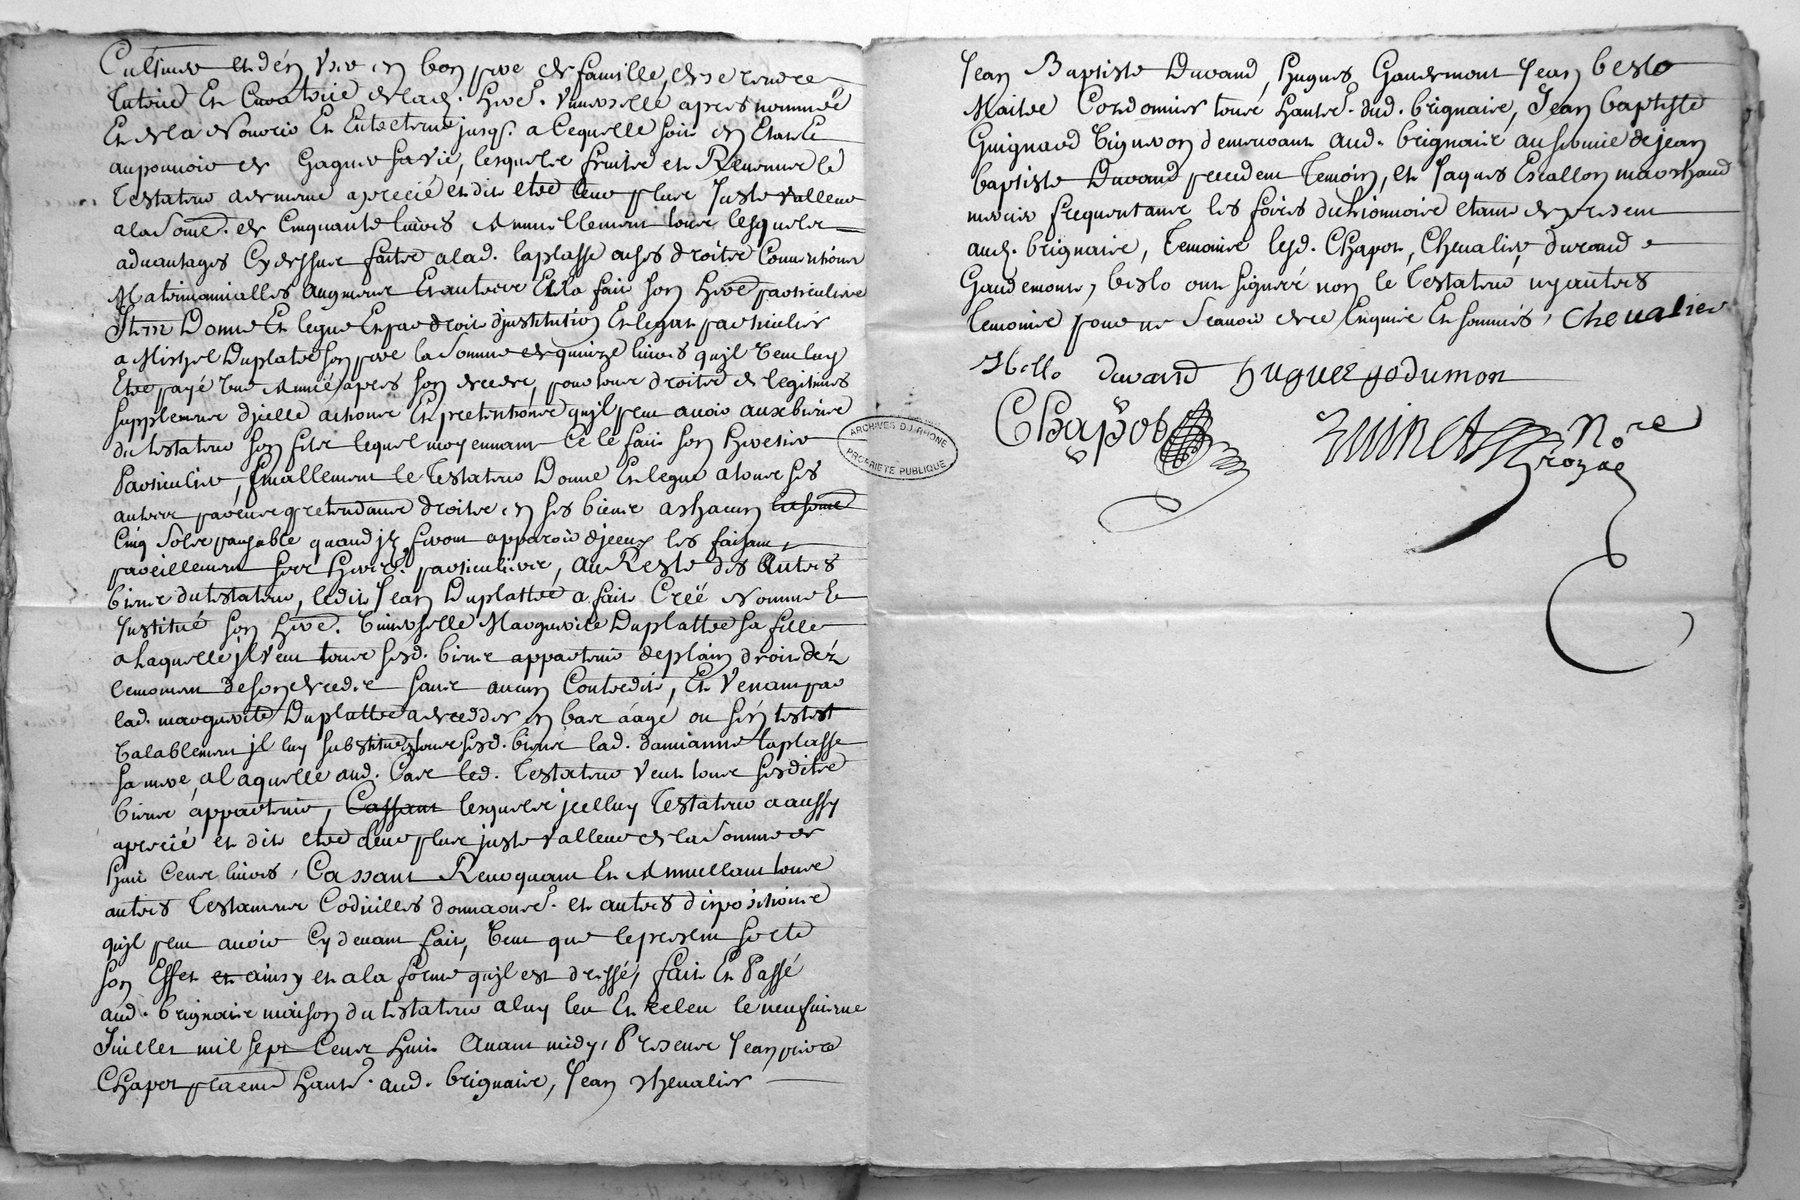 Cultiver et d'en User en bon pere de famille, de se rendre
tutrice Et Curatrice de lad. here. Universelle apres nommée
Et de la Nourrir Et Entretenir jusqs. a Cequelle soit en Etat Et
aupouvoir de Gagner sa vie, lesquels fruits et Revenus le
Testateur a de meme aprecié et dit etre leur plus Juste valleur
ala some. de Cinquante livres Annuellement tous lesquels
advantages Cy dessus faits alad. laplasse outre ses droits Conventions
Matrimonialles Augment Et autres Et la fait son herre particuliere
Item Donne Et legue Et par droit d'jnstitution Et legat particulier
a Michel Duplatre son pere la Somme de quinze livres qu'jl veut luy
Etre payé Une Année apres son deces, pour tous droits de legitimes
supplement d'jcelle actions Et pretentions qu'jl peut avoir aux biens
du testateur son fils lequel moyennant Ce le fait son heretier
Particulier, finallement le Testateur Donne Et legue a tous ses
autres parents pretendants droits en ses biens a chacun la some
Cinq Sols payable quand jls feront apparoir d'jceux les faisant
pareillement ses herers. particuliers, Au Reste des Autres
biens du testateur, ledit Jean Duplattre a fait Créé Nommé Et
Justitué son here. Universelle Marguerite Duplattre sa fille
a laquelle jl veut tous sesd. biens appartenir de plain droit dez
le moment de son deces sans aucun Contredit, Et Venant par
lad. marguerite Duplattre a deceder en bas áagé ou sén testet
Valablement jl luy substitue tous sesd. biens lad. damianne laplasse
sa mere, a laquelle aud. Cas led. Testateur Veut tous sesdits
biens appartenir, Cassant lesquels jcelluy Testateur a aussy
aprecié et dit etre leur plus juste valleur de la Somme de
huit Cents livres, Cassant Revoquant Et Annullant tous
autres Testaments Codicilles donnations. et autres dispositions
qu'jl peut avoir Cy devant fait, Veut que le present sorte
son Effet et ainsy et a la forme qu'jl est dressé, fait Et Passé
aud. brignais maison du testateur a luy leu Et releu le neufvieme
Juillet mil sept Cents huit Avant midy, Presents Jean pierre
Chapot platrier habt. aud. brignais, Jean chevalier
Jean Baptiste Durand, Hugues Gaudemont Jean beslo
Maitre Cordonnier tous habts. dud. brignais, Jean baptiste
Guignard Vigneron demeurant aud. brignais au service de jean
baptiste Durand precedent Temoin, et Jaques Escallon marchand
mercier frequentant les foires du lionnois etant de present
aud. brignais, Temoins lesd. Chapot, Chevalier, durand
Gaudemont, beslo ont signéé non le Testateur ny autres
temoins pour ne Scavoir de ce Enquis Et sommés, Chevalier
durand hugues godumon
Chapot Nore
Royal
ARCHIVES DU RHONE
PROPRIETE PUBLIQUE